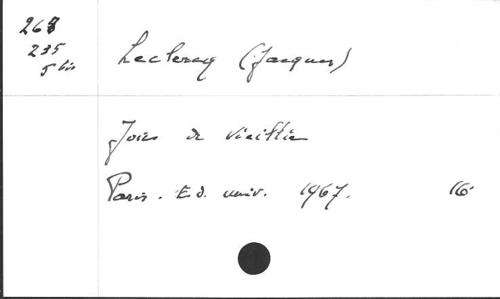 268
235
5 bis
Leclercq (Jacques)
Joies de vieillir
Paris. Ed. univ. 1967. 16°